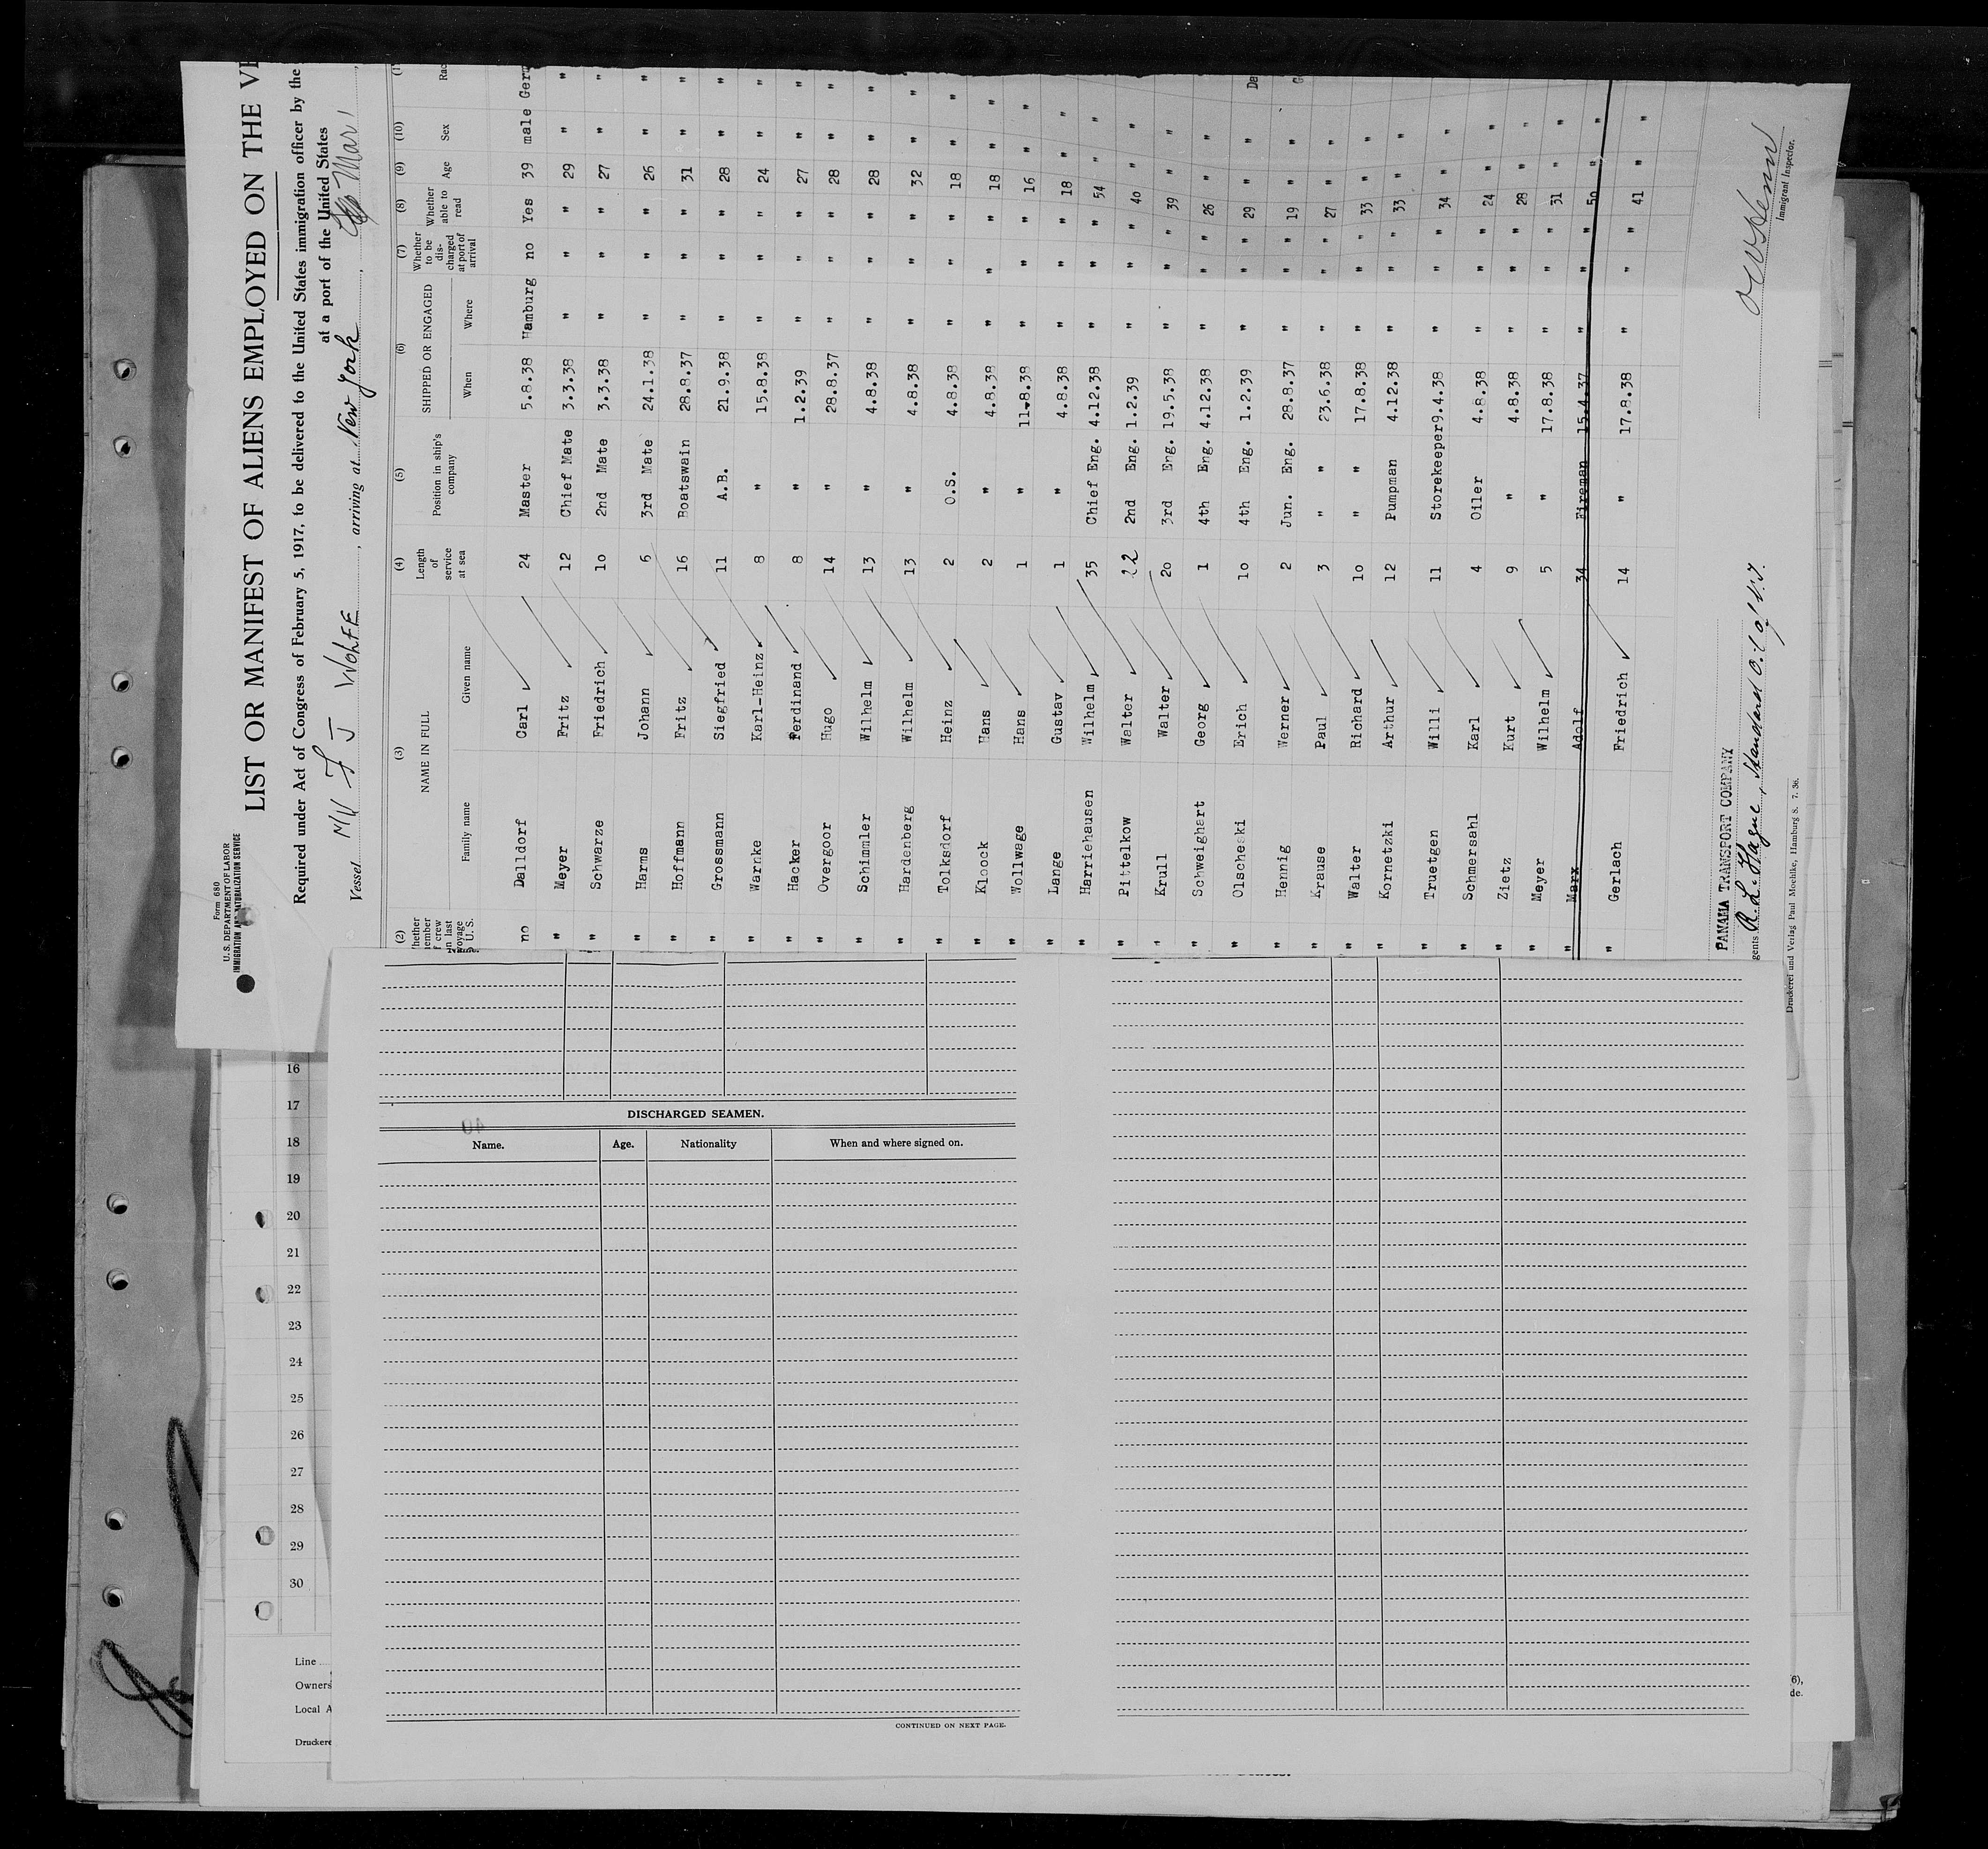 Form 680
U. S. DEPARTMENT OF LABOR
IMMIGRATION AND NATURALIZATION SERVICE
LIST OR MANIFEST OF ALIENS EMPLOYED ON THE
Required under Act of Congress of February 5, 1917, to be delivered to the United States immigration officer by the
at a port of the United States
Vessel M/V F J WOLFE, arriving at New York,
(2) (3) (4) (5) (6) (7) (8) (9) (10)
NAME IN FULL Length of service at sea Position in ship's company SHIPPED OR ENGAGED Whether to be discharged at port of arrival Whether able to read Age Sex
Family name Given name When Where
no Dalldorf Carl 24 Master 5.8.38 Hamburg no Yes 39 male
" Meyer Fritz 12 Chief Mate 3.3.38 " " " 29 " "
" Schwarze Friedrich 10 2nd Mate 3.3.38 " " " 27 " "
" Harms Johann 6 3rd Mate 24.1.38 " " " 26 " "
" Hoffmann Fritz 16 Boatswain 28.8.37 " " " 31 " "
" Grossmann Siegfried 11 A.B. 21.9.38 " " " 28 " "
" Warnke Karl-Heinz 8 " 15.8.38 " " " 24 " "
" Hacker Ferdinand 8 " 1.2.39 " " " 27 " "
" Overgoor Hugo 14 " 28.8.37 " " " 28 " "
" Schimmler Wilhelm 13 " 4.8.38 " " " 28 " "
" Hardenberg Wilhelm 13 " 4.8.38 " " " 32 " "
" Tolksdorf Heinz 2 O.S. 4.8.38 " " " 18 " "
" Kloock Hans 2 " 4.8.38 " " " 18 " "
" Wollwage Hans 1 " 11.8.38 " " " 16 " "
" Lange Gustav 1 " 4.8.38 " " " 18 " "
" Harriehausen Wilhelm 35 Chief Eng. 4.12.38 " " " 54 " "
" Pittelkow Walter 22 2nd Eng. 1.2.39 " " " 40 " "
" Krull Walter 20 3rd Eng. 19.5.38 " " " 39 "
" Schweighart Georg 1 4th Eng. 4.12.38 " " " 26 " "
" Olscheski Erich 10 4th Eng. 1.2.39 " " " 29 " "
" Hennig Werner 2 Jun. Eng. 28.8.37 " " " 19 " "
" Krause Paul 3 " " 23.6.38 " " " 27 " "
" Walter Richard 10 " " 17.8.38 " " " 33 " "
" Kornetzki Arthur 12 Pumpman 4.12.38 " " " 33 " "
" Truetgen Willi 11 Storekeeper 9.4.38 " " " 34 " "
" Schmersahl Karl 4 Oiler 4.8.38 " " " 24 " "
" Zietz Kurt 9 " 4.8.38 " " " 28 " "
" Meyer Wilhelm 5 " 17.8.38 " " " 31 " "
" Marx Adolf 34 Fireman 15.4.37 " " " 50 " "
" Gerlach Friedrich 14 " 17.8.38 " " " 41 " "
PANAMA TRANSPORT COMPANY
R. L. Hague, Standard Oil Co. of N.J.
Immigrant Inspector.
Druckerei und Verlag Paul Moehlke, Hamburg 8. 7. 36.
DISCHARGED SEAMEN.
Name. Age. Nationality When and where signed on.
CONTINUED ON NEXT PAGE.
16
17
18
19
20
21
22
23
24
25
26
27
28
29
30
Line
Owners
Local A
Druckere